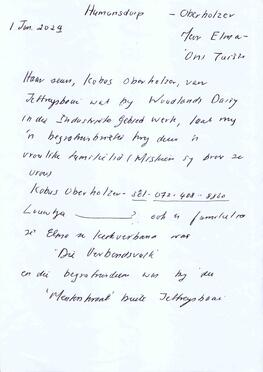 Humansdorp - Oberholzer
1 Jun. 2029
Mev Elma -
Ons Tuiste
Haar seun, Kobus Oberholzer, van
Jeffreysbaai wat by Woodlands Dairy
in die Industriële Gebied werk, laat my
'n begrafnisbrief kry deur 'n
vroulike familielid (Miskien sy broer se
vrou)
Kobus Oberholzer - 081-072-408-8860
Louwtjie ? ook 'n familielid
se Elma se kerkverband was
"Die Verbondsvolk"
en die begrafnisdiens was by die
'Mentorskraal' buite Jeffreysbaai